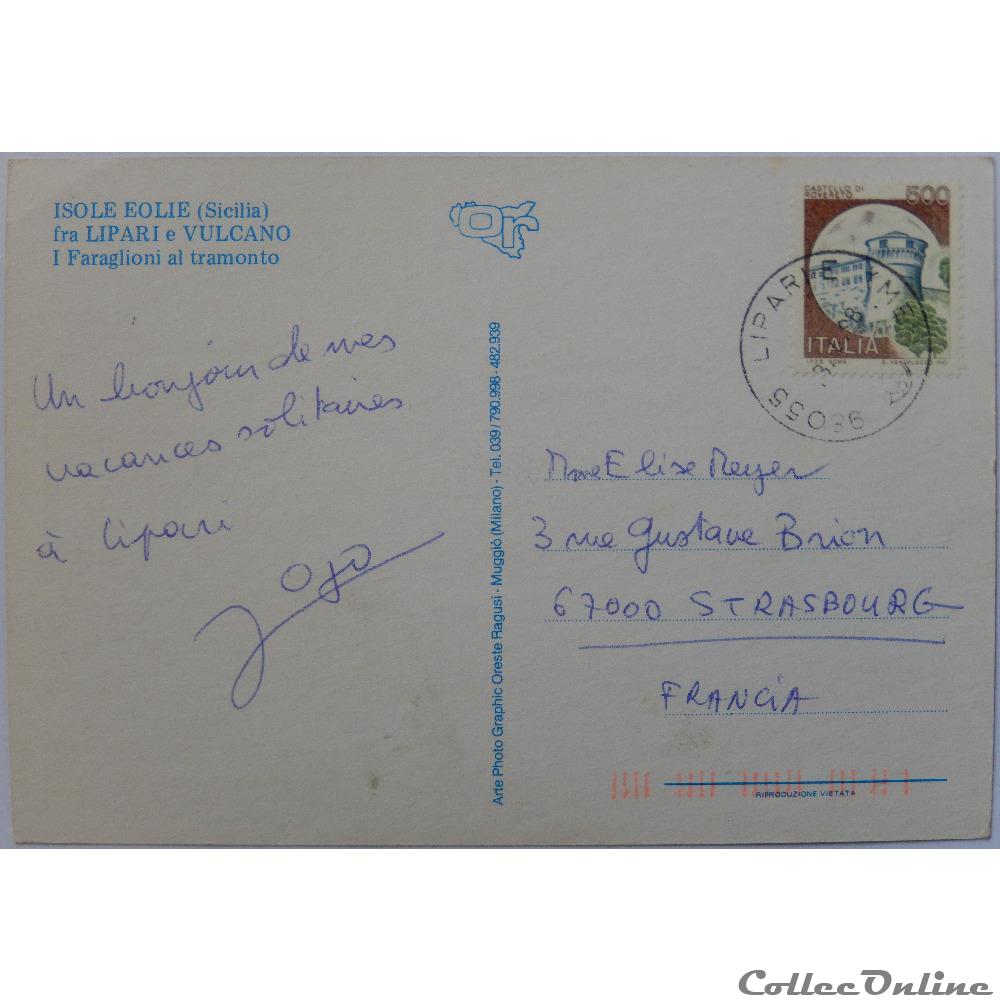 ISOLE EOLIE (Sicilia)
fra LIPARI e VULCANO
I Faraglioni al tramonto
Un bonjour de mes
vacances solitaires
à Lipari
Jojo
Arte Photo Graphic Oreste Ragusi - Muggiò (Milano) - Tel. 039/790.998 - 482.939
CASTELLO DI
ROVERETO
500
ITALIA
I.P.Z.S. ROMA
98055 LIPARI E
ME
Mme Elise Meyer
3 rue Gustave Brion
67000 STRASBOURG
FRANCIA
RIPRODUZIONE VIETATA
CollecOnline